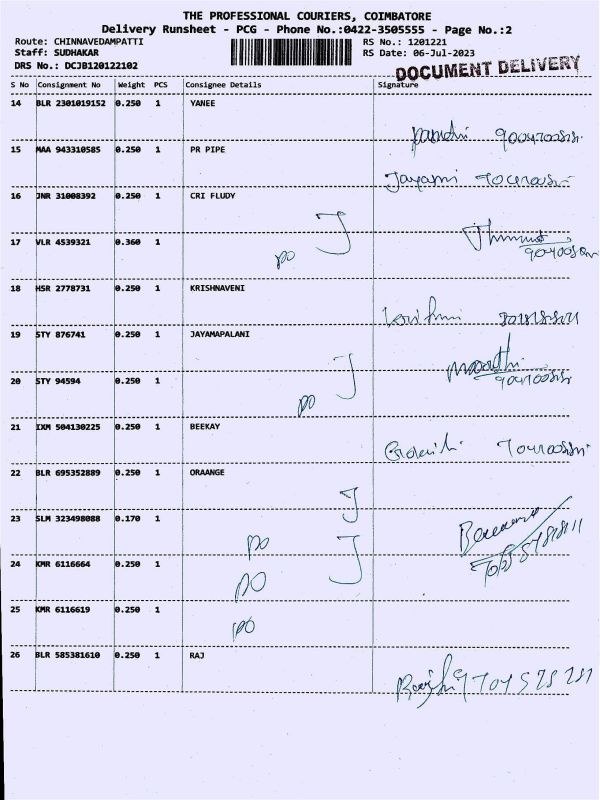 THE PROFESSIONAL COURIERS, COIMBATORE
Delivery Runsheet - PCG - Phone No.:0422-3505555 - Page No.:2
Route: CHINNAVEDAMPATTI RS No.: 1201221
Staff: SUDHAKAR RS Date: 06-Jul-2023
DRS No.: DCJB120122102
DOCUMENT DELIVERY
S No Consignment No Weight PCS Consignee Details Signature
14 BLR 2301019152 0.250 1 YANEE
15 MAA 943310585 0.250 1 PR PIPE
16 JNR 31008392 0.250 1 CRI FLUDY
17 VLR 4539321 0.360 1
PO
18 HSR 2778731 0.250 1 KRISHNAVENI
19 STY 876741 0.250 1 JAYAMAPALANI
20 STY 94594 0.250 1
PO
21 IXM 504130225 0.250 1 BEEKAY
22 BLR 695352889 0.250 1 ORAANGE
23 SLM 323498088 0.170 1
PO
24 KMR 6116664 0.250 1
PO
25 KMR 6116619 0.250 1
PO
26 BLR 585381610 0.250 1 RAJ